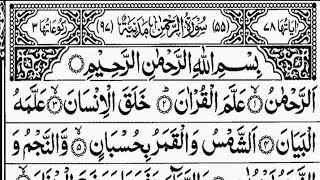 اٰيَاتُهَا ٧٨ (٥٥) سُوْرَةُ الرَّحْمٰنِ مَدَنِيَّةٌ (٩٧) رُكُوْعَاتُهَا ٣
بِسْمِ اللّٰهِ الرَّحْمٰنِ الرَّحِيْمِ
اَلرَّحْمٰنُ ۙ﴿١﴾ عَلَّمَ الْقُرْاٰنَ ؕ﴿٢﴾ خَلَقَ الْاِنْسَانَ ۙ﴿٣﴾ عَلَّمَهُ
الْبَيَانَ ﴿٤﴾ اَلشَّمْسُ وَالْقَمَرُ بِحُسْبَانٍ ۪﴿٥﴾ وَّالنَّجْمُ وَ